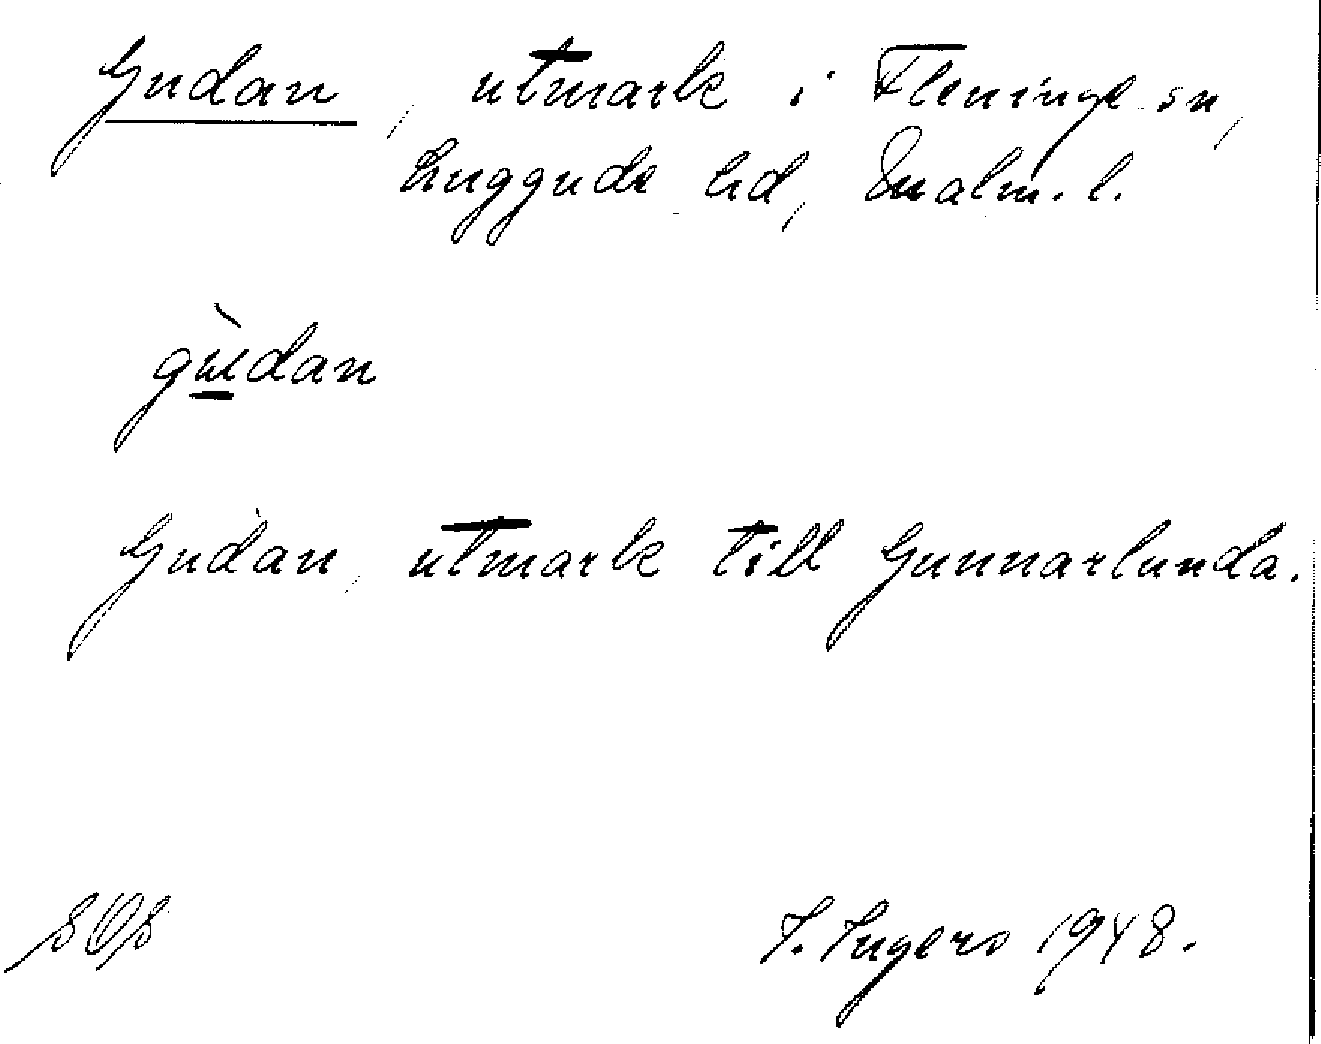 Gudan, utmark i Fleninge sn,
Luggude hd, Malm. l.
gùdan
Gudan, utmark till Gunnarlunda.
SOS I. Ingers 1948.